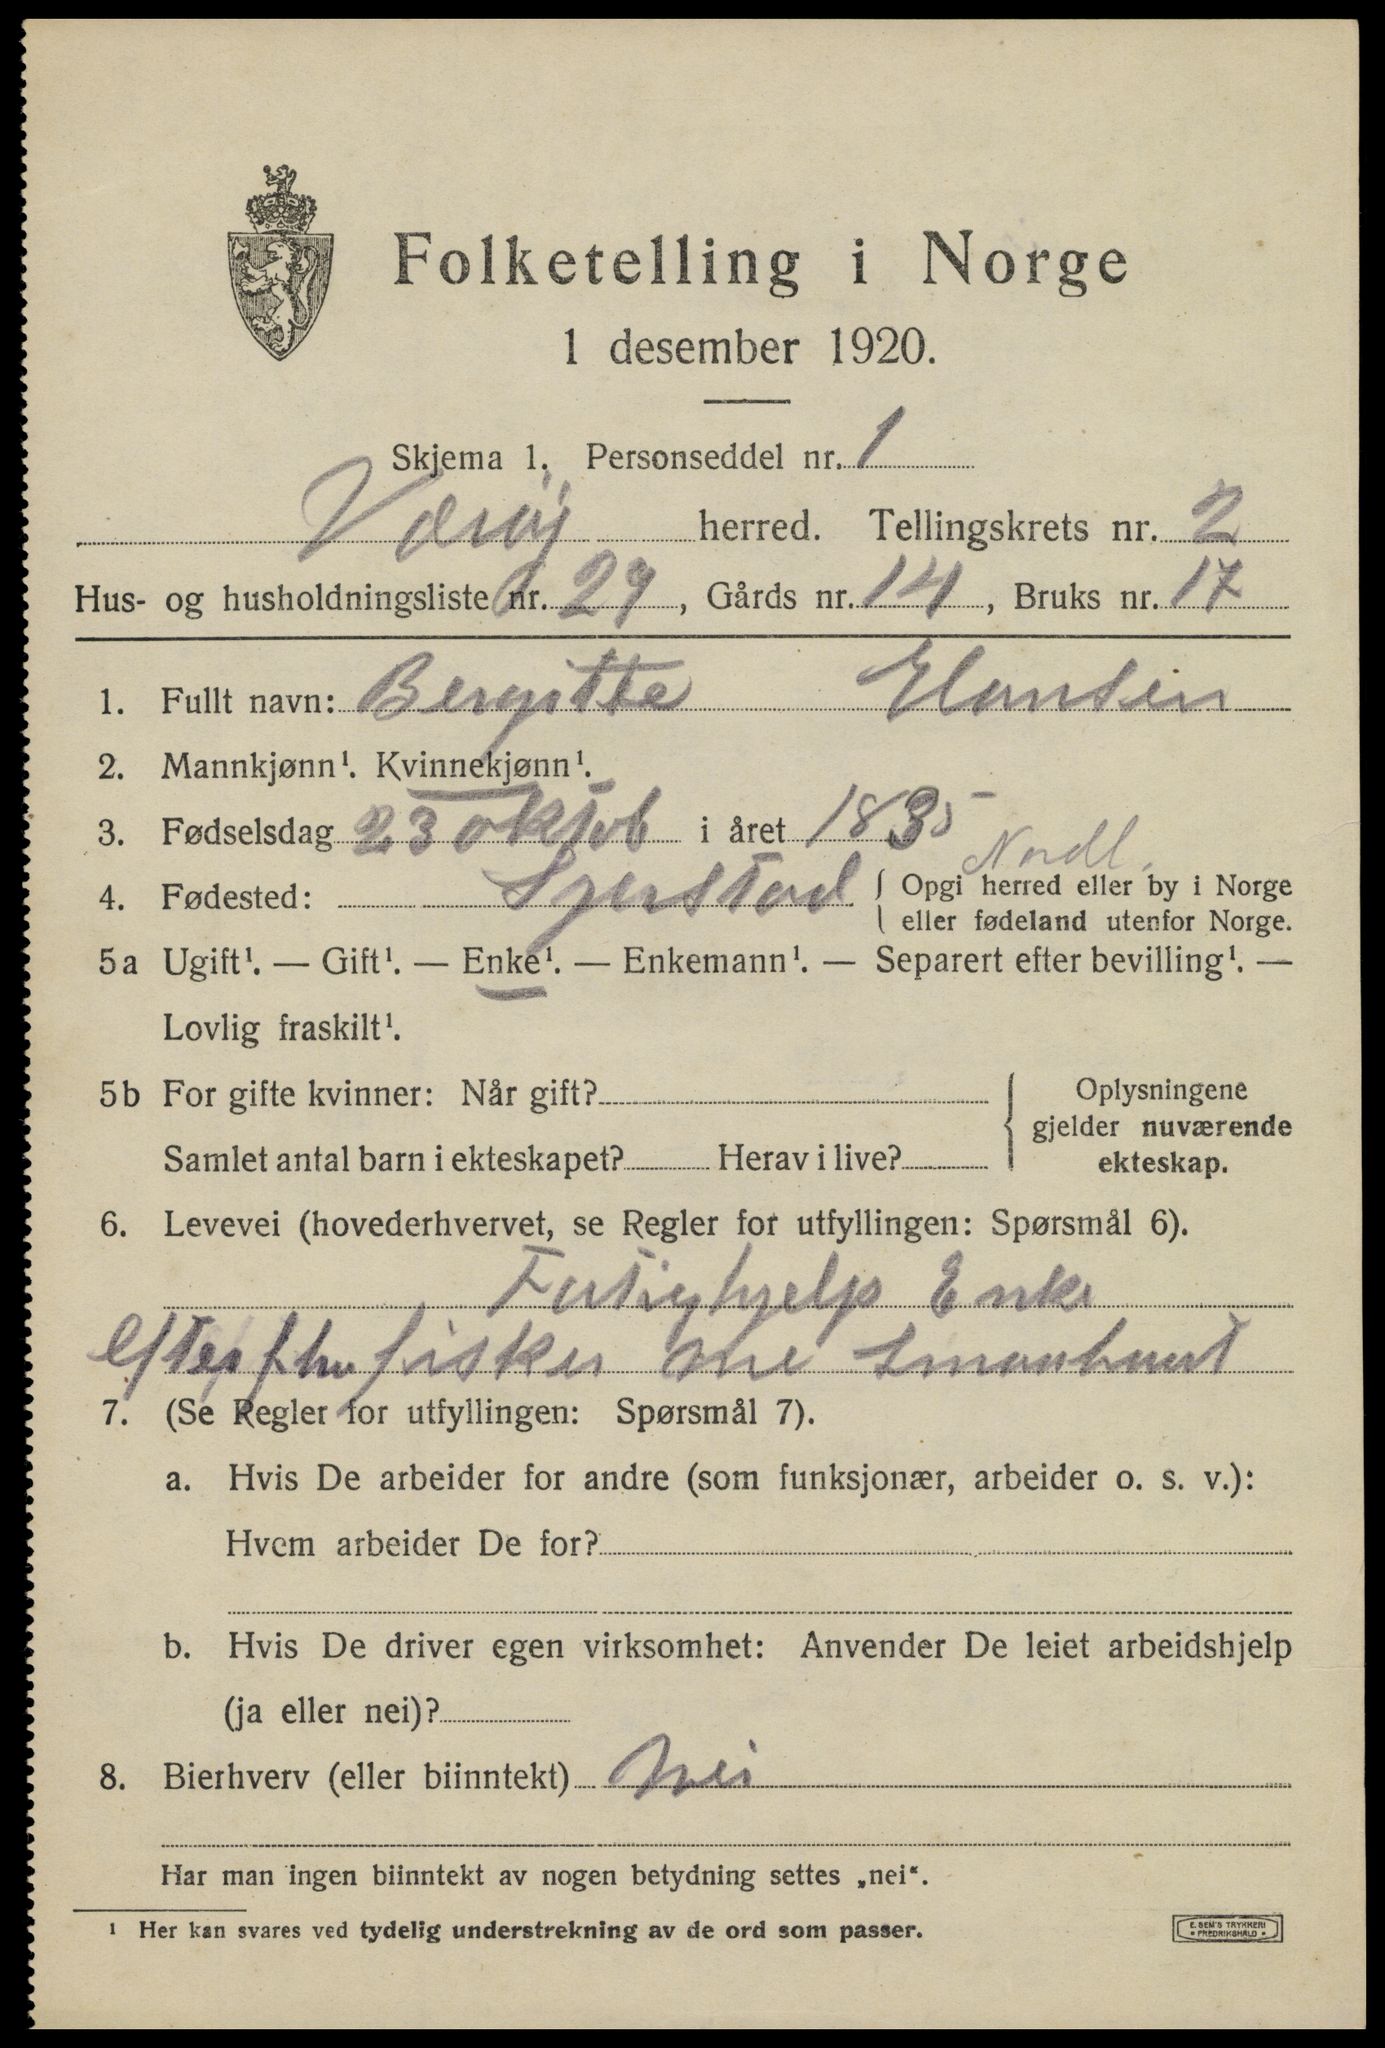 Folketelling i Norge
1 desember 1920.
Skjema 1. Personseddel nr. 1
Værøy herred. Tellingskrets nr. 2
Hus- og husholdningsliste nr. 29, Gårds nr. 14, Bruks nr. 17
1. Fullt navn: Bergitte Hansen
2. Mannkjønn¹. Kvinnekjønn¹.
3. Fødselsdag 23 oktob i året 1835
Nordl.
4. Fødested: { Opgi herred eller by i Norge
eller fødeland utenfor Norge.
5a Ugift¹. — Gift¹. — Enke¹. — Enkemann¹. — Separert efter bevilling¹. —
Lovlig fraskilt¹.
5b For gifte kvinner: Når gift?
Samlet antal barn i ekteskapet? Herav i live?
Oplysningene
gjelder nuværende
ekteskap.
6. Levevei (hovederhvervet, se Regler for utfyllingen: Spørsmål 6).
Enke
efter fisker
7. (Se Regler for utfyllingen: Spørsmål 7).
a. Hvis De arbeider for andre (som funksjonær, arbeider o. s. v.):
Hvem arbeider De for?
b. Hvis De driver egen virksomhet: Anvender De leiet arbeidshjelp
(ja eller nei)?
8. Bierhverv (eller biinntekt) Nei
Har man ingen biinntekt av nogen betydning settes „nei“.
¹ Her kan svares ved tydelig understrekning av de ord som passer.
E. SEM'S TRYKKERI
• FREDRIKSHALD •